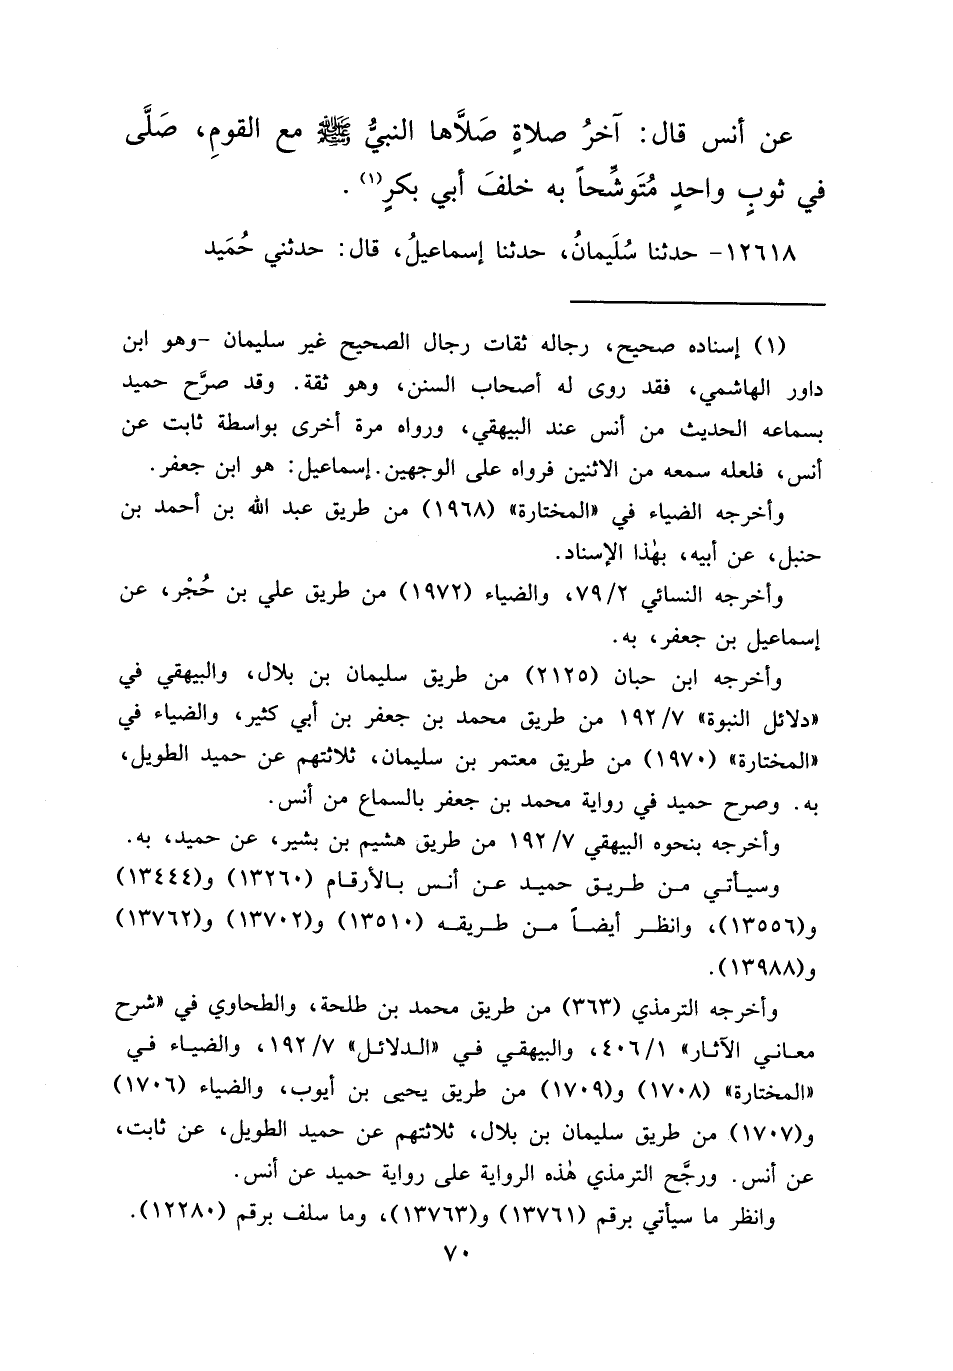 عن أنس قال: آخرُ صلاةٍ صَلاَّها النبيُّ ﷺ مع القومِ، صَلَّى
في ثوبٍ واحدٍ مُتَوشِّحاً به خلفَ أبي بكرٍ(١).
١٢٦١٨- حدثنا سُلَيمانُ، حدثنا إسماعيلُ، قال: حدثني حُمَيد
(١) إسناده صحيح، رجاله ثقات رجال الصحيح غير سليمان -وهو ابن
داور الهاشمي، فقد روى له أصحاب السنن، وهو ثقة. وقد صرَّح حميد
بسماعه الحديث من أنس عند البيهقي، ورواه مرة أخرى بواسطة ثابت عن
أنس، فلعله سمعه من الاثنين فرواه على الوجهين. إسماعيل: هو ابن جعفر.
وأخرجه الضياء في «المختارة» (١٩٦٨) من طريق عبد الله بن أحمد بن
حنبل، عن أبيه، بهٰذا الإسناد.
وأخرجه النسائي ٧٩/٢، والضياء (١٩٧٢) من طريق علي بن حُجْر، عن
إسماعيل بن جعفر، به.
وأخرجه ابن حبان (٢١٢٥) من طريق سليمان بن بلال، والبيهقي في
«دلائل النبوة» ١٩٢/٧ من طريق محمد بن جعفر بن أبي كثير، والضياء في
«المختارة» (١٩٧٠) من طريق معتمر بن سليمان، ثلاثتهم عن حميد الطويل،
به. وصرح حميد في رواية محمد بن جعفر بالسماع من أنس.
وأخرجه بنحوه البيهقي ١٩٢/٧ من طريق هشيم بن بشير، عن حميد، به.
وسيأتي من طريق حميد عن أنس بالأرقام (١٣٢٦٠) و(١٣٤٤٤)
و(١٣٥٥٦)، وانظر أيضاً من طريقه (١٣٥١٠) و(١٣٧٠٢) و(١٣٧٦٢)
و(١٣٩٨٨).
وأخرجه الترمذي (٣٦٣) من طريق محمد بن طلحة، والطحاوي في «شرح
معاني الآثار» ٤٠٦/١، والبيهقي في «الدلائل» ١٩٢/٧، والضياء في
«المختارة» (١٧٠٨) و(١٧٠٩) من طريق يحيى بن أيوب، والضياء (١٧٠٦)
و(١٧٠٧) من طريق سليمان بن بلال، ثلاثتهم عن حميد الطويل، عن ثابت،
عن أنس. ورجَّح الترمذي هٰذه الرواية على رواية حميد عن أنس.
وانظر ما سيأتي برقم (١٣٧٦١) و(١٣٧٦٣)، وما سلف برقم (١٢٢٨٠).
٧٠